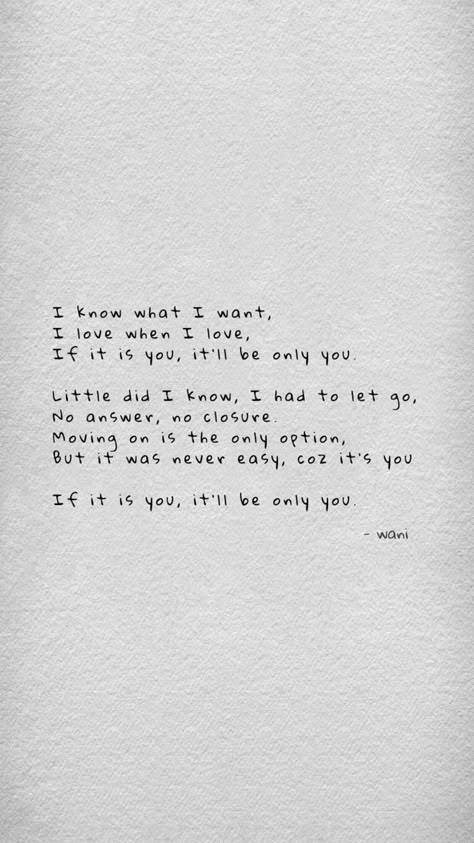 I know what I want,
I love when I love,
If it is you, it'll be only you.
Little did I know, I had to let go,
No answer, no closure.
Moving on is the only option,
But it was never easy, coz it's you
If it is you, it'll be only you.
- wani